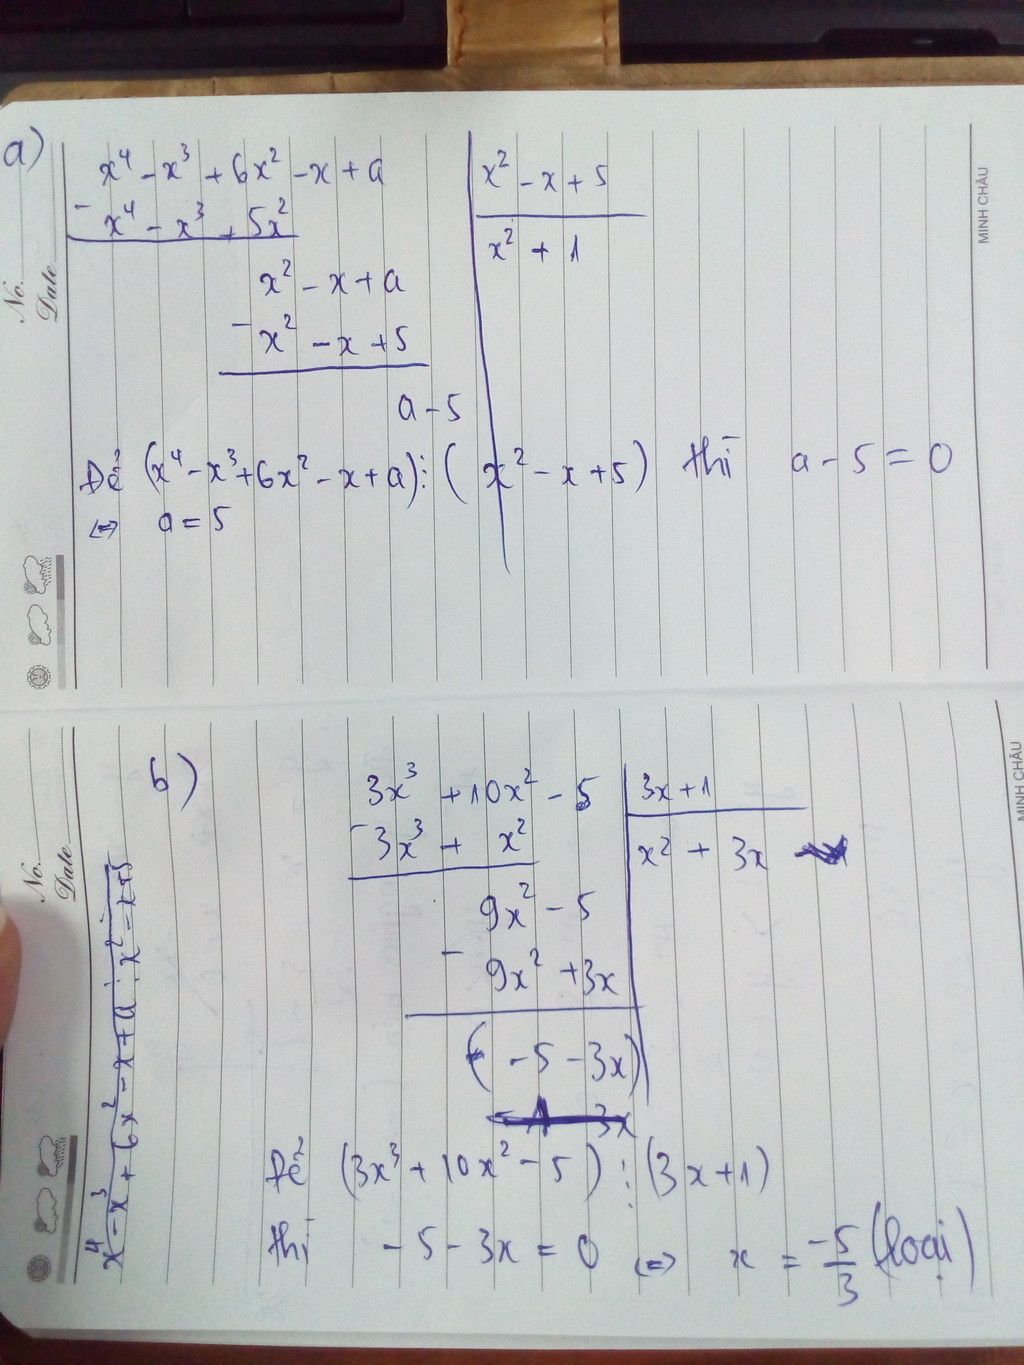 a)
x⁴ - x³ + 6x² - x + a
x² - x + 5
- x⁴ - x³ + 5x²
x² + 1
x² - x + a
- x² - x + 5
a - 5
Để (x⁴ - x³ + 6x² - x + a) ⋮ (x² - x + 5) thì a - 5 = 0
⇔ a = 5
No.
Date
MINH CHÂU
b)
3x³ + 10x² - 5
3x + 1
- 3x³ + x²
x² + 3x
9x² - 5
- 9x² + 3x
( - 5 - 3x)
3x
Để (3x³ + 10x² - 5) ⋮ (3x + 1)
thì - 5 - 3x = 0 ⇔ x = -5/3 (loại)
x⁴ - x³ + 6x² - x + a : x² - x + 5
No.
Date
MINH CHÂU